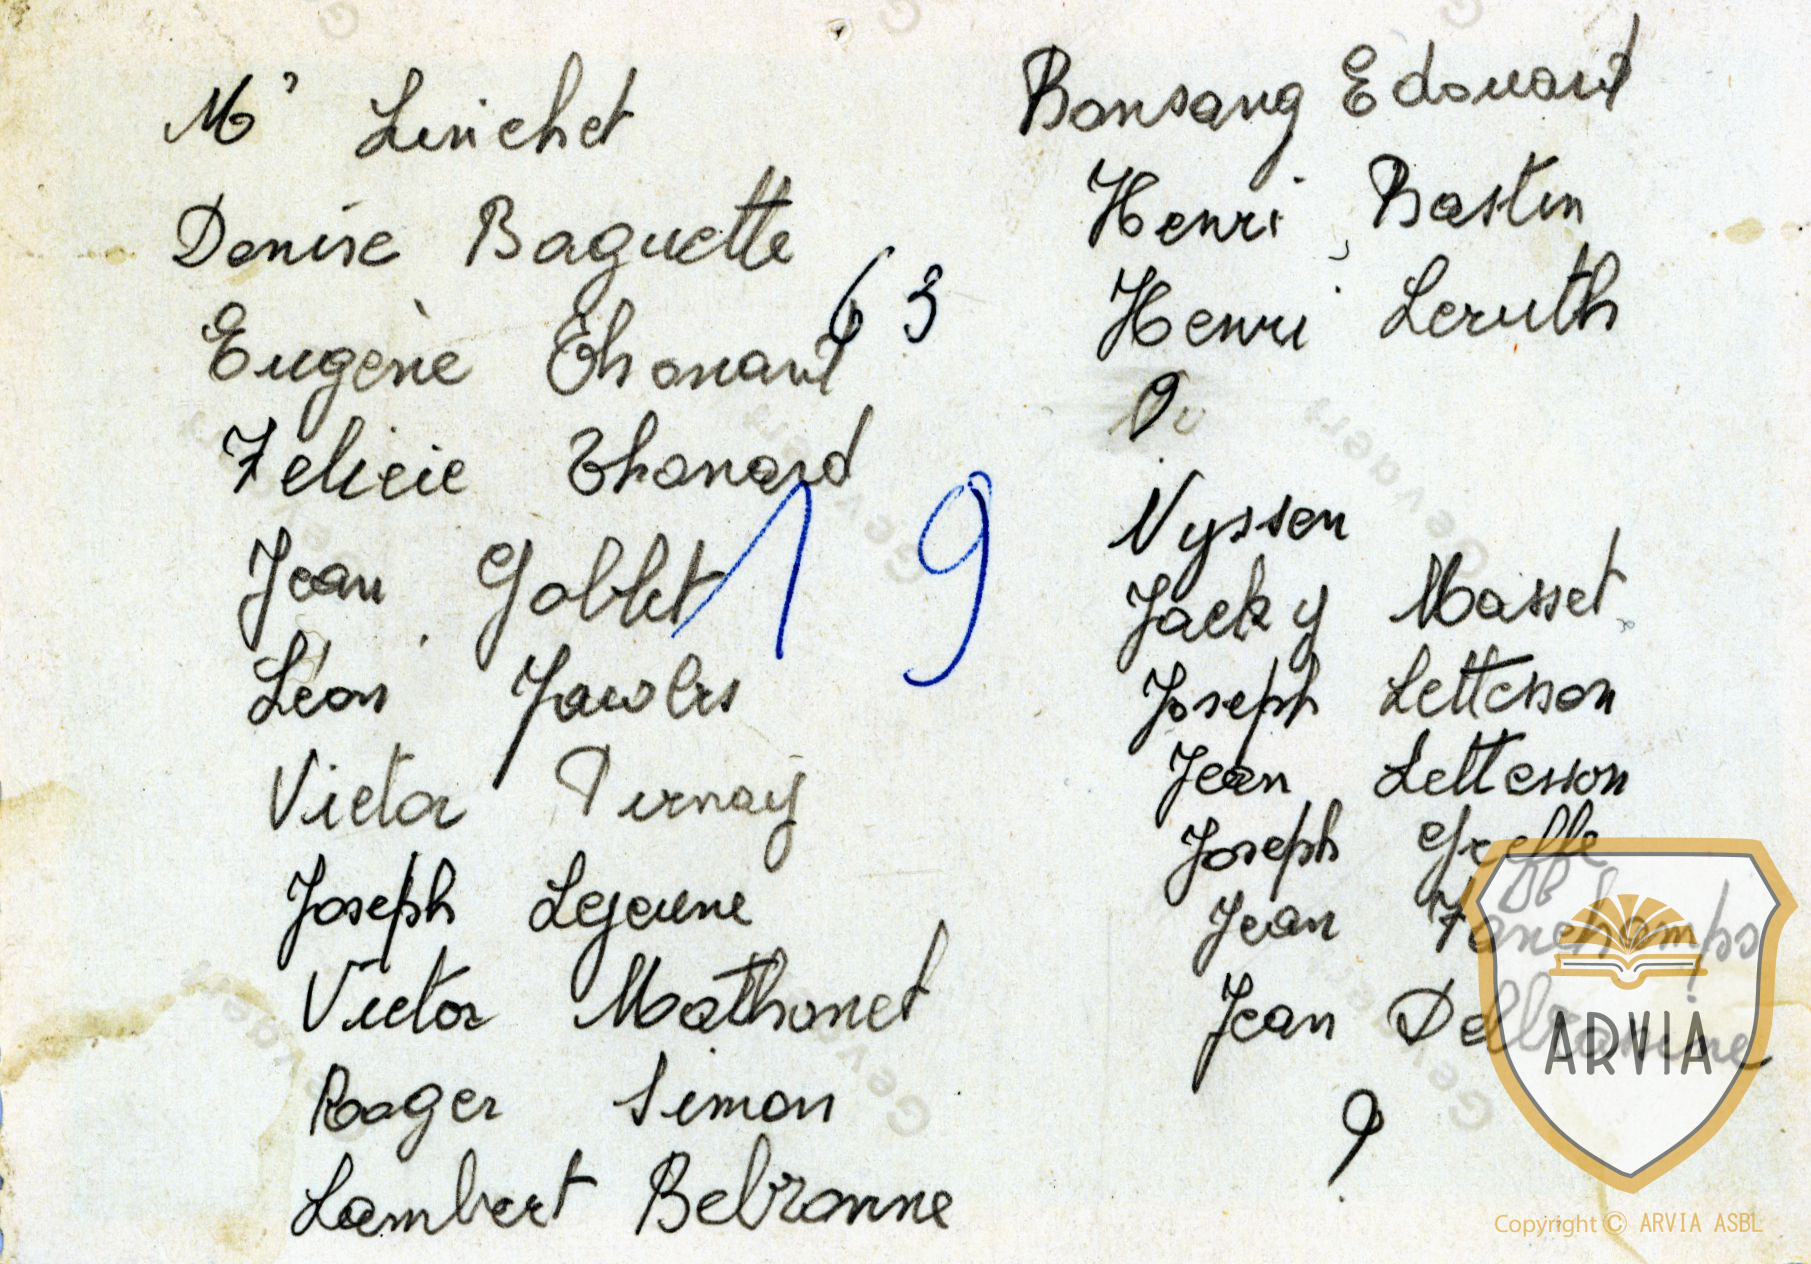 Mr Linchet
Denise Baguette
Eugènie Thonard
63
Felicie Thonard
Jean Goblet
19
Léon Jacobs
Victor Pirnay
Joseph Lejeune
Victor Mathonet
Roger Simon
Lambert Belvonne
Bonsang Edouard
Henri Bastin
Henri Leruth
Nyssen
Jacky Masset
Joseph Lettesson
Jean Lettesson
Joseph Grelle
Jean Fanchamps
Jean Delbranine
?
ARVIA
Copyright © ARVIA ASBL
Gevaert